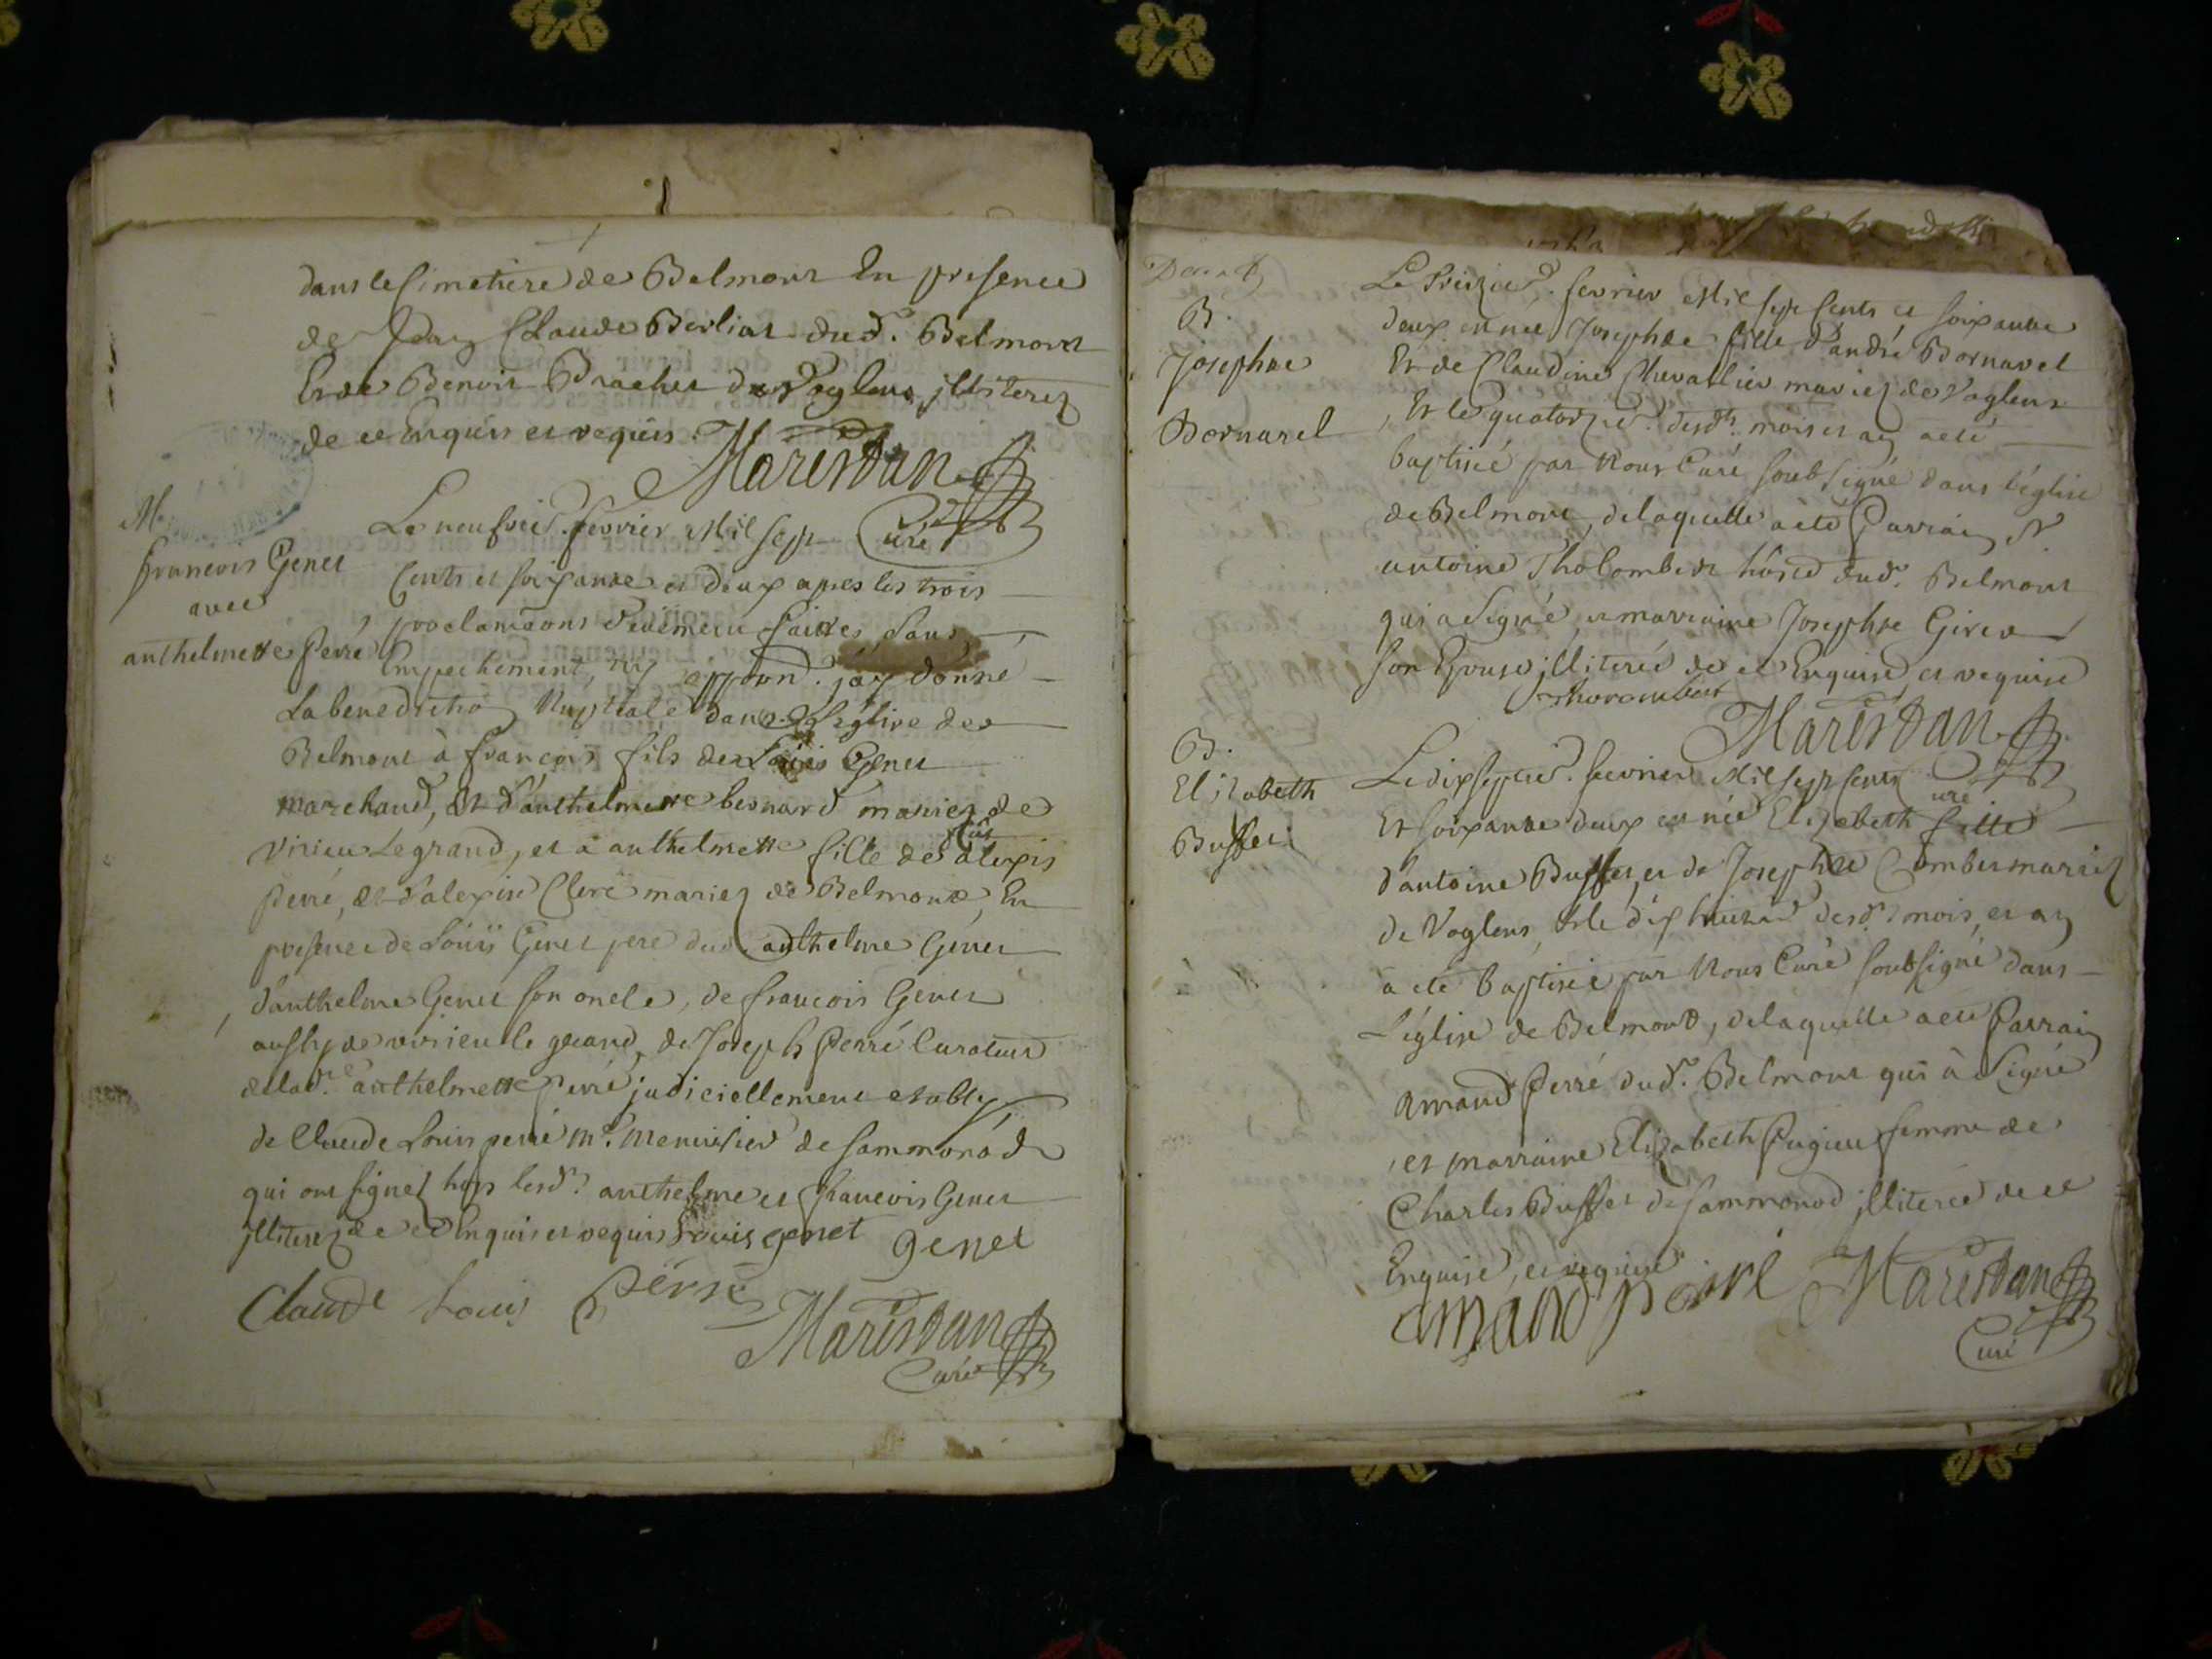 dans le Cimetiere de Belmont En presence
de Jean Claude Berliat dud. Belmont
Et de Benoit Brachet de Voglens jlliterez
de ce Enquis et requis. Maristan
Curé
M.
francois Genet
avec
anthelmette Perré
Le neufvie. fevrier Mil sept
Cents et soixante et deux apres les trois
proclamãons duëment faittes sans
Empechement, ny oppõn. j'ay donné
La benediction Nuptiale dans L'église de
Belmont à francois fils de Loüis Genet
marchand, Et d'anthelmette besnard mariez de
Virieu Le grand, et à anthelmette fille de alexis
Perré, Et d'alexise Clerc mariez de Belmont, En
presence de Loüis Genet pere dud. anthelme Genet
d'anthelme Genet son oncle, de francois Genet
aussy de virieu le grand, de Joseph Perré Curateur
de lad. anthelmette Perré judiciellement etably
de Claude Louis perré Me. Menuisier de Sammonod
qui ont signez hors lesd. anthelme et francois Genet
jlliterez de ce Enquis et requis Louis genet genet
Claude Louis Perré
Maristan
Curé
B.
Josephte
Bornarel
Le Treizie. fevrier Mil sept cents et soixante
deux est née Josephte fille d'andré Bornarel
Et de Claudine Chevallier mariez de Voglens
Et le quatorzie. desds. mois et an a eté
baptisée par Nous Curé soubsigné dans l'église
de Belmont, de laquelle a eté Parrain Sr.
antoine Tholombert hoste dud. Belmont
qui a signé, et marraine Josephte Giret
son Epouse jlliterée de ce Enquise, et requise
Tholombert
Maristan
Curé
B.
Elizabeth
Buffet
Le dixseptie. fevrier Mil sept cents
Et soixante deux est née Elizabeth fille
d'antoine Buffet, et de Josephte Combet mariez
de Voglens, Et le dixhuitie. desd. mois, et an
a eté baptisée par Nous Curé soubsigné dans
L'église de Belmont, de laquelle a eté Parrain
Amand Perré dud. Belmont qui à signé
et marraine Elizabeth Pugieu femme de
Charles Buffet de Sammonod jlliterée de ce
Enquise, et requise
amand perré Maristan
Curé